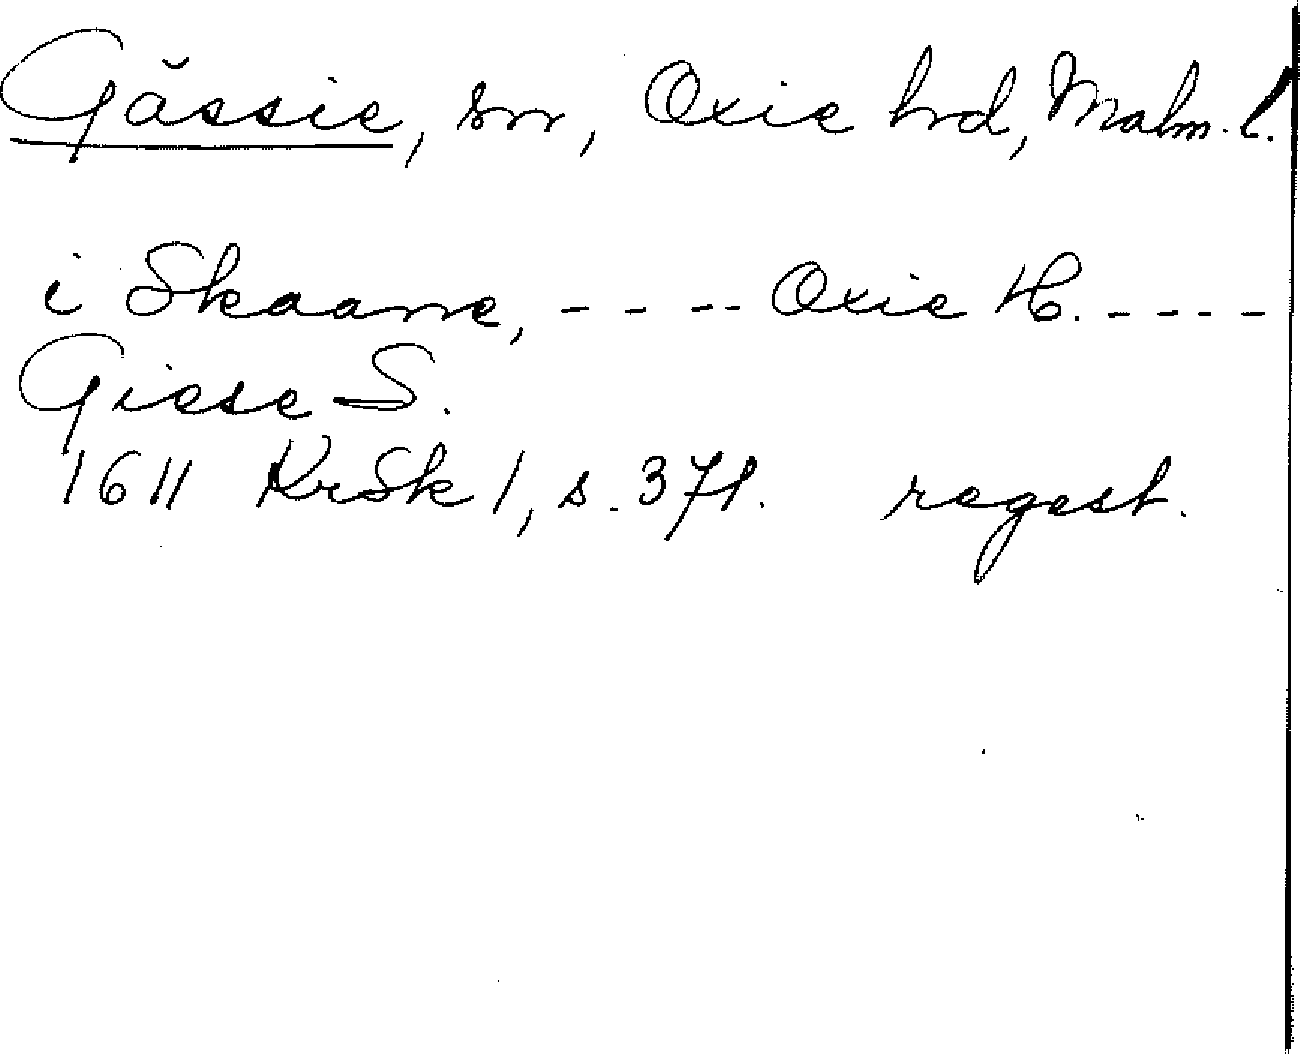 Gässie, sn, Oxie hd, Malm. l.
i Skaane, - - - - Oxie H. - - - -
Giese S.
1611 KrSk 1, s. 371. regest.